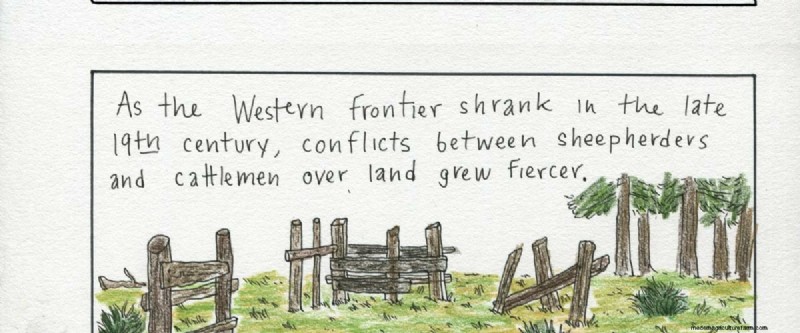 As the Western frontier shrank in the late
19th century, conflicts between sheepherders
and cattlemen over land grew fiercer.